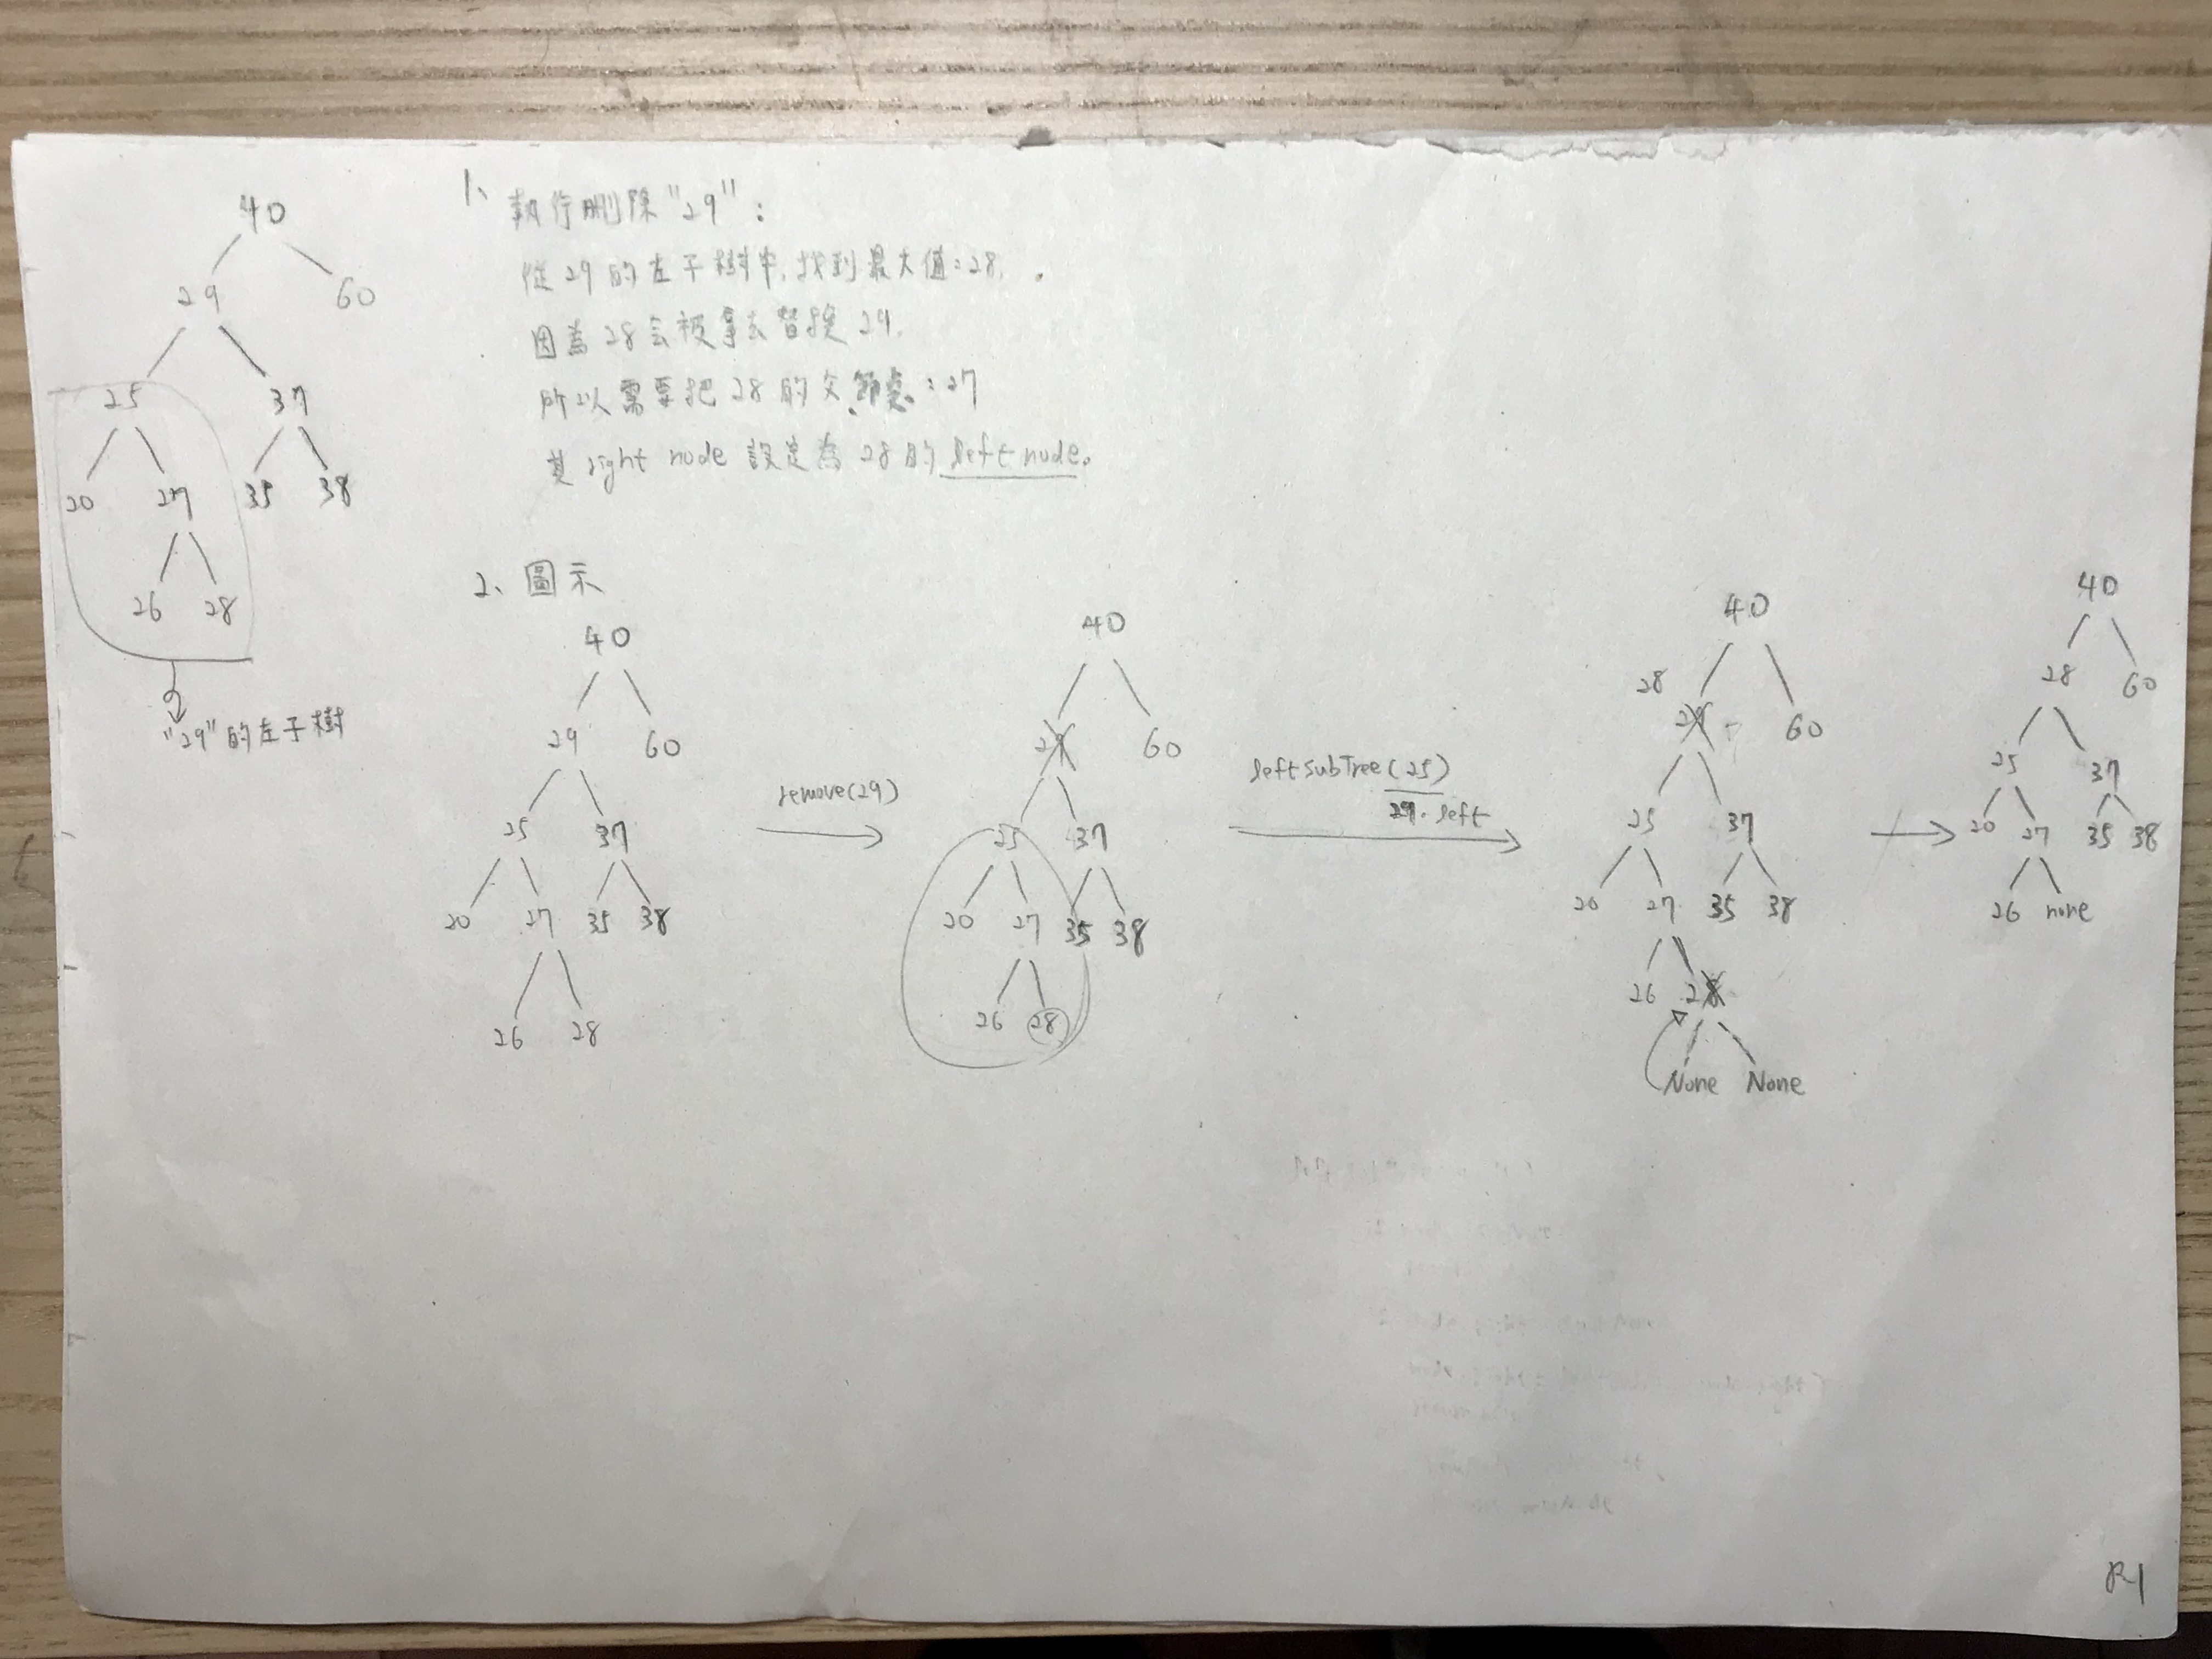 40
29 60
25 37
20 27 35 38
26 28
"29"的左子樹
1、執行刪除"29":
從29的左子樹中,找到最大值:28.
因為28会被拿去替換29.
所以需要把28的父節點:27
其right node 設定為28的left node。
2、圖示
40
29 60
25 37
20 27 35 38
26 28
remove(29)
40
29 60
25 37
20 27 35 38
26 28
leftSubTree(25)
29.left
40
28
29 60
25 37
20 27 35 38
26 28
None None
40
28 60
25 37
20 27 35 38
26 none